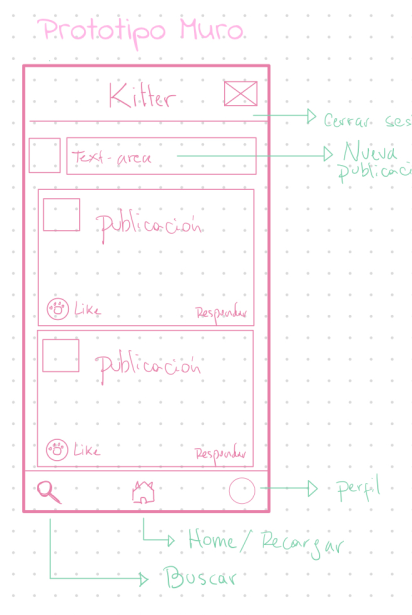 Prototipo Muro.
Kitter
Cerrar ses
Text-area
Nueva
publicaci
publicación
Like
Responder
publicación
Like
Responder
perfil
Home/ Recargar
Buscar